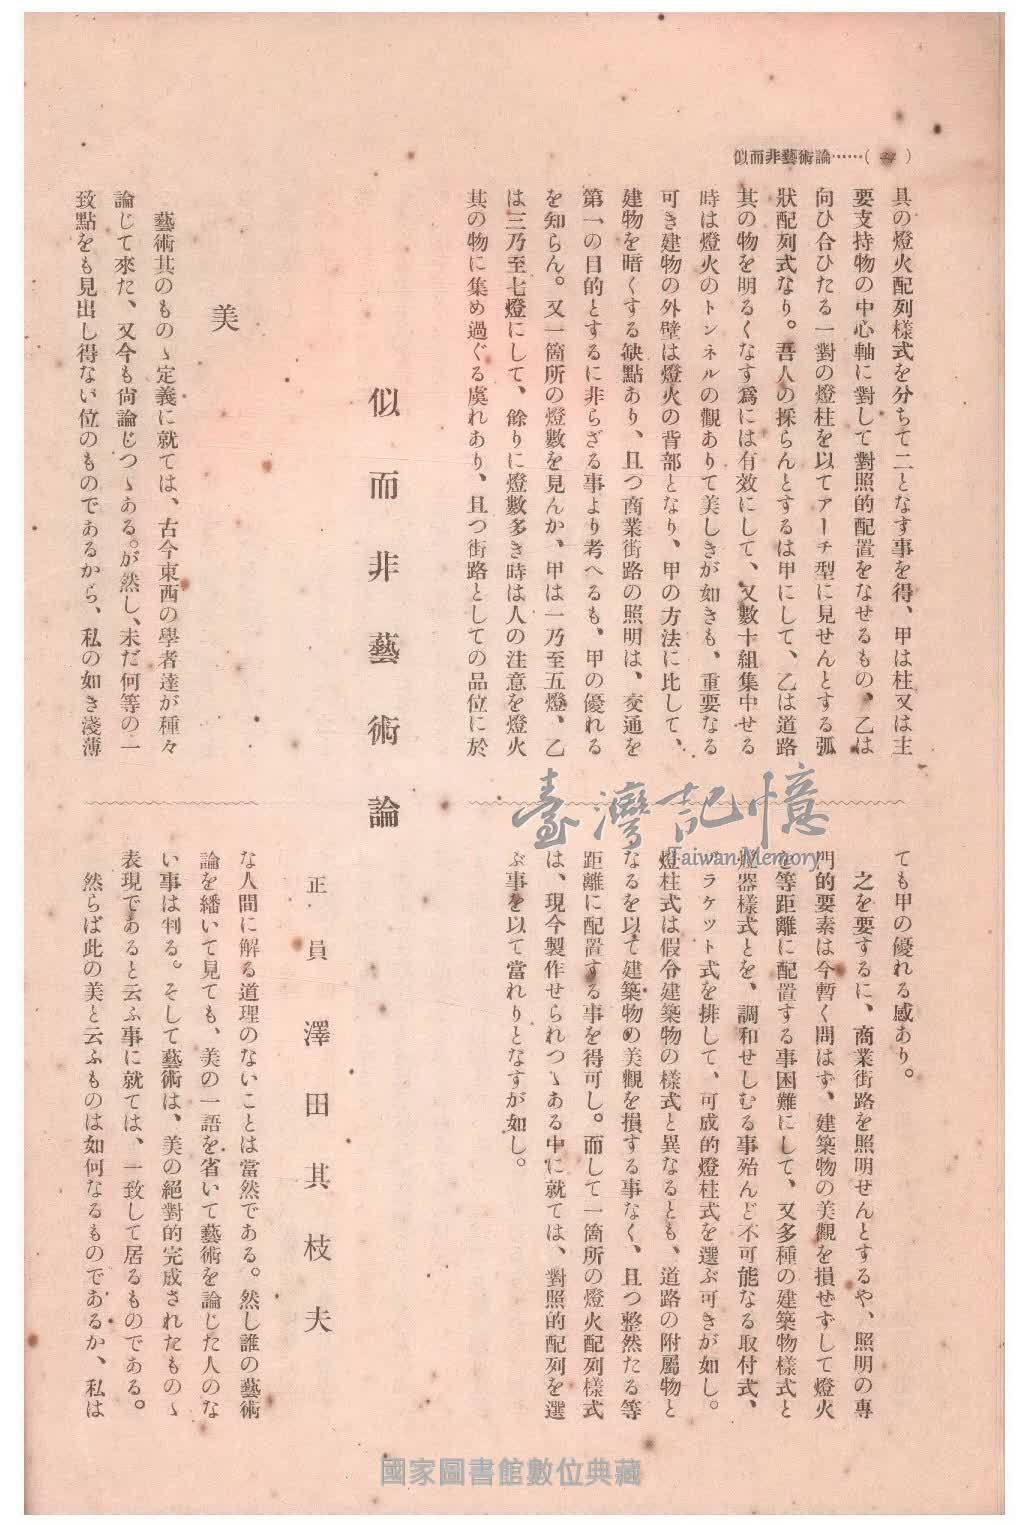 似而非藝術論……( )
具の燈火配列樣式を分ちて二となす事を得、甲は柱又は主
要支持物の中心軸に對して對照的配置をなせるもの、乙は
向ひ合ひたる一對の燈柱を以てアーチ型に見せんとする弧
狀配列式なり。吾人の採らんとするは甲にして、乙は道路
其の物を明るくなす爲には有效にして、又數十組集中せる
時は燈火のトンネルの觀ありて美しきが如きも、重要なる
可き建物の外壁は燈火の背部となり、甲の方法に比して、
建物を暗くする缺點あり、且つ商業街路の照明は、交通を
第一の目的とするに非らざる事より考へるも、甲の優れる
を知らん。又一箇所の燈數を見んか、甲は一乃至五燈、乙
は三乃至七燈にして、餘りに燈數多き時は人の注意を燈火
其の物に集め過ぐる虞れあり、且つ街路としての品位に於
ても甲の優れる感あり。
之を要するに、商業街路を照明せんとするや、照明の專
門的要素は今暫く問はず、建築物の美觀を損せずして燈火
を等距離に配置する事困難にして、又多種の建築物樣式と
燈器樣式とを、調和せしむる事殆んど不可能なる取付式、
ブラケット式を排して、可成的燈柱式を選ぶ可きが如し。
燈柱式は假令建築物の樣式と異なるとも、道路の附屬物と
なるを以て建築物の美觀を損する事なく、且つ整然たる等
距離に配置する事を得可し。而して一箇所の燈火配列樣式
は、現今製作せられつゝある中に就ては、對照的配列を選
ぶ事を以て當れりとなすが如し。
似而非藝術論
正員 澤田其枝夫
美
藝術其のものゝ定義に就ては、古今東西の學者達が種々
論じて來た、又今も尙論じつゝある。が然し、未だ何等の一
致點をも見出し得ない位のものであるから、私の如き淺薄
な人間に解る道理のないことは當然である。然し誰の藝術
論を繙いて見ても、美の一語を省いて藝術を論じた人のな
い事は判る。そして藝術は、美の絕對的完成されたものゝ
表現であると云ふ事に就ては、一致して居るものである。
然らば此の美と云ふものは如何なるものであるか、私は
臺灣記憶
Taiwan Memory
國家圖書館數位典藏